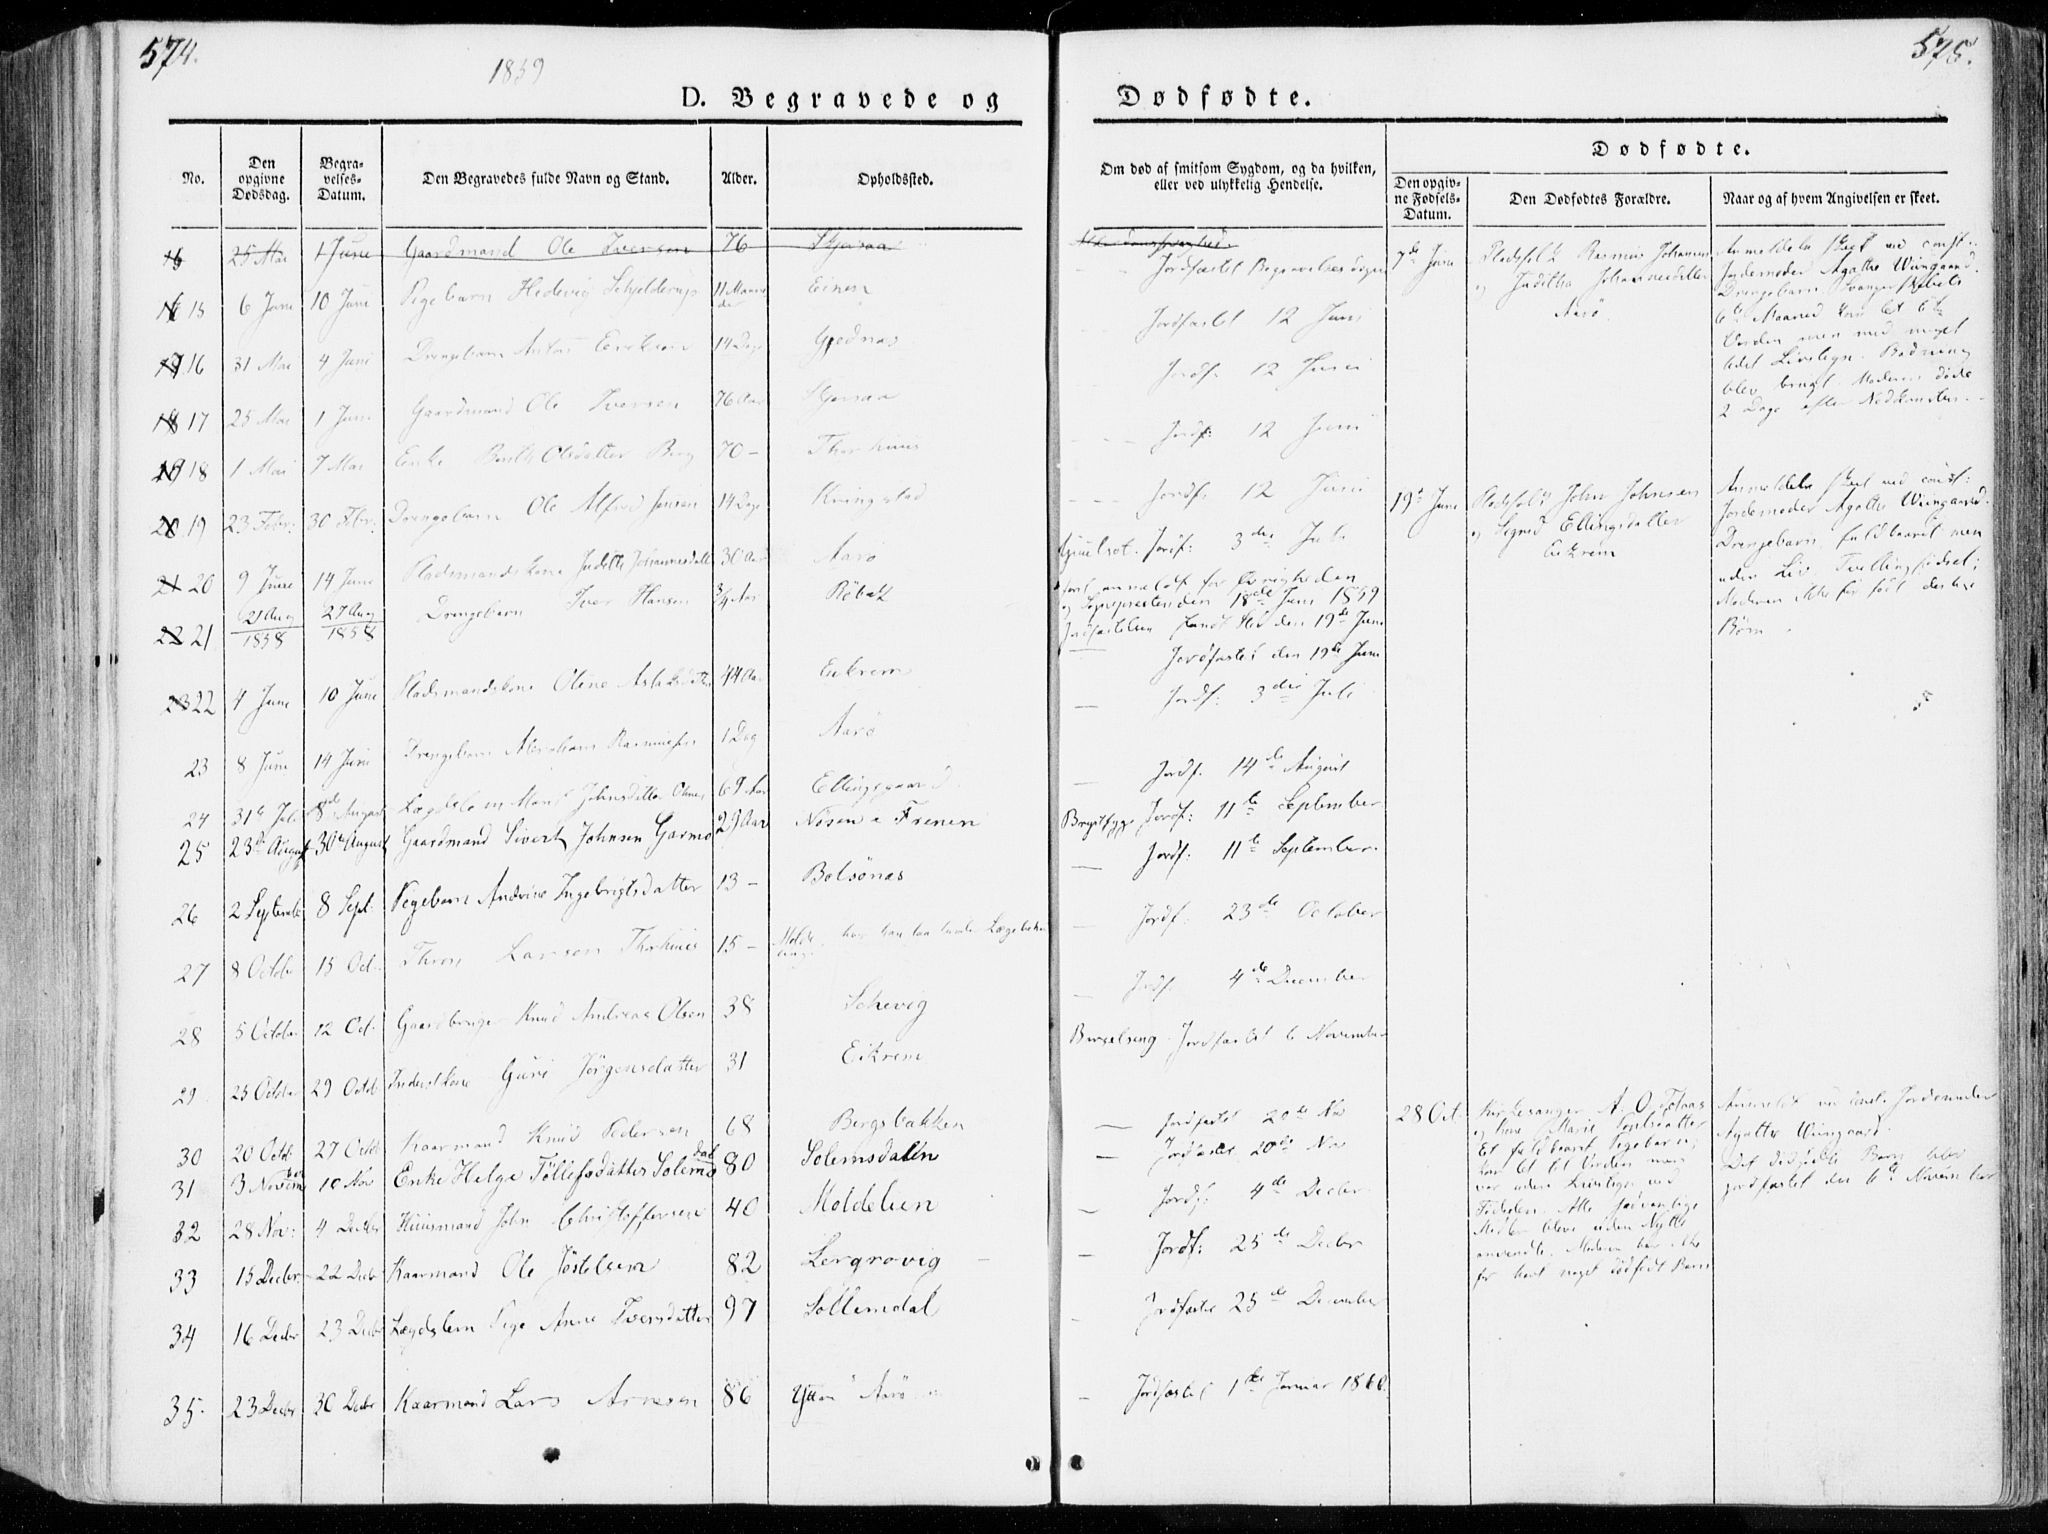 574.
1859
575.
D. Begravede og
Dødfødte.
No.
Den opgivne Dødsdag.
Begravelses-Datum.
Den Begravedes fulde Navn og Stand.
Alder.
Opholdssted.
Om død af smitsom Sygdom, og da hvilken, eller ved ulykkelig Hendelse.
Dødfødte.
Den opgivne Fødsels-Datum.
Den Dødfødtes Forældre.
Naar og af hvem Angivelsen er skeet.
16 25 Mai 1 Juni Gaardmand Ole Iversen 76
15 6 Juni 10 Juni Pigebarn Hedevig Schjelderup 11 Maaneder Einen
Jordfæstet Begravelsesdagen
16 31 Mai 4 Juni Drengebarn Anton Eriksen 14 Dage
Jordfæstet 12 Juni
17 25 Mai 1 Juni Gaardmand Ole Iversen 76 Aar
Jordf: 12 Juni
18 1 Mai 7 Mai Enke Berith Olsdatter Berg 70 – Thorhuus
Jordf: 12 Juni
19 23 Febr: 30 Febr: Drengebarn Ole Alfred Jensen 14 Dage Kringstad
Jordf: 12 Juni
20 9 Juni 14 Juni Pladsmandskone Judith Johannesdatter 30 Aar Aarø
Jordf: 3die Juli
21 21 Aug 1858 27 Aug 1858 Drengebarn Iver Hansen 3/4 Aar Röbek
18de Juni 1859
den 19de Juni
22 4 Juni 10 Juni Pladsmandskone Oline Aslaksdatter 44 Aar Eikrem
Jordfæstet den 19de Juni
23 8 Juni 14 Juni Drengebarn Abraham Rasmussen 1 Dag Aarø
Jordf: 3die Juli
24 31te Juli 8de August Lægdslem Marit Johnsdatter 69 Aar Ellingsgaard
Jordf. 14de August
25 23de August 30te August Gaardmand Sivert Johnsen Garmo 29 Aar Nösen i Frenen
Brystsyge Jordf: 11te September
26 2 Septembr 8 Sept. Pigebarn Andrine Ingebrigtsdatter 13 – Bolsönæs
Jordf: 11te September.
27 8 Octobr 15 Oct. Larsen Thorhuus 15 – Molde
Jordf: 23de October
28 5 Octobr 12 Oct. Gaardbruger Knud Andreas Olsen 38
Jordf. 4de December
29 25 Octobr 29 Octb Inderstkone Guri Jörgensdatter 31 Eikrem
Barselseng Jordfæstet 6 November
30 20 Octb 27 Octb Kaarmand Knud Pedersen 68 Bergsbakken
Jordfæstet 20de Nov
31 3 November 10 Nov Enke Helge Töllefsdatter Solemsdal 80 Solemsdalen
Jordfæstet 20de Nov
32 28 Nov: 4 Decbr Huusmand John Christoffersen 40 Moldelien
Jordf: 4de Decbr
33 15 Decbr. 22 Decbr Kaarmand Ole Jöstelsen 82 Lergrovig
Jordf: 25de Decbr
34 16 Decbr 23 Decbr Lægdslem Pige Anne Iversdatter 97 Sollemdal
Jordfæstet 25de December
35. 23 Decbr 30 Decbr Kaarmand Lars Arnesen 86 Aarø
Jordfæstet 1ste Januar 1860.
7de Juni
Rasmus Johannsen
og Juditha Johannesdatter
Aarø
Anmeldelse skeet ved const:
Jordemoder Agathe Wiingaard.
Drengebarn
Moderen døde
2 Dage efter Nedkomsten.
19de Juni
John Johnsen
og Sigrid Ellingsdatter
Eikrem
Anmeldelse skeet ved const:
Jordemoder Agathe Wiingaard.
Drengebarn, fuldbaaret men
uden Liv Tvillingfødsel;
Moderen ikke før født
Børn
28 Oct.
Kirkesanger A. O.
og Kone Marie
Et fuldbaaret Pigebarn;
kom til Verden men
var uden Livstegn ved
Fødselen. Alle sædvanlige
Midler bleve uden Nytte
anvendte. Moderen har ikke
før havt noget dødfødt Barn
Anmeldt ved const. Jordemoder
Agathe Wiingaard.
Det dødfødte Barn blev
jordfæstet den 6te November